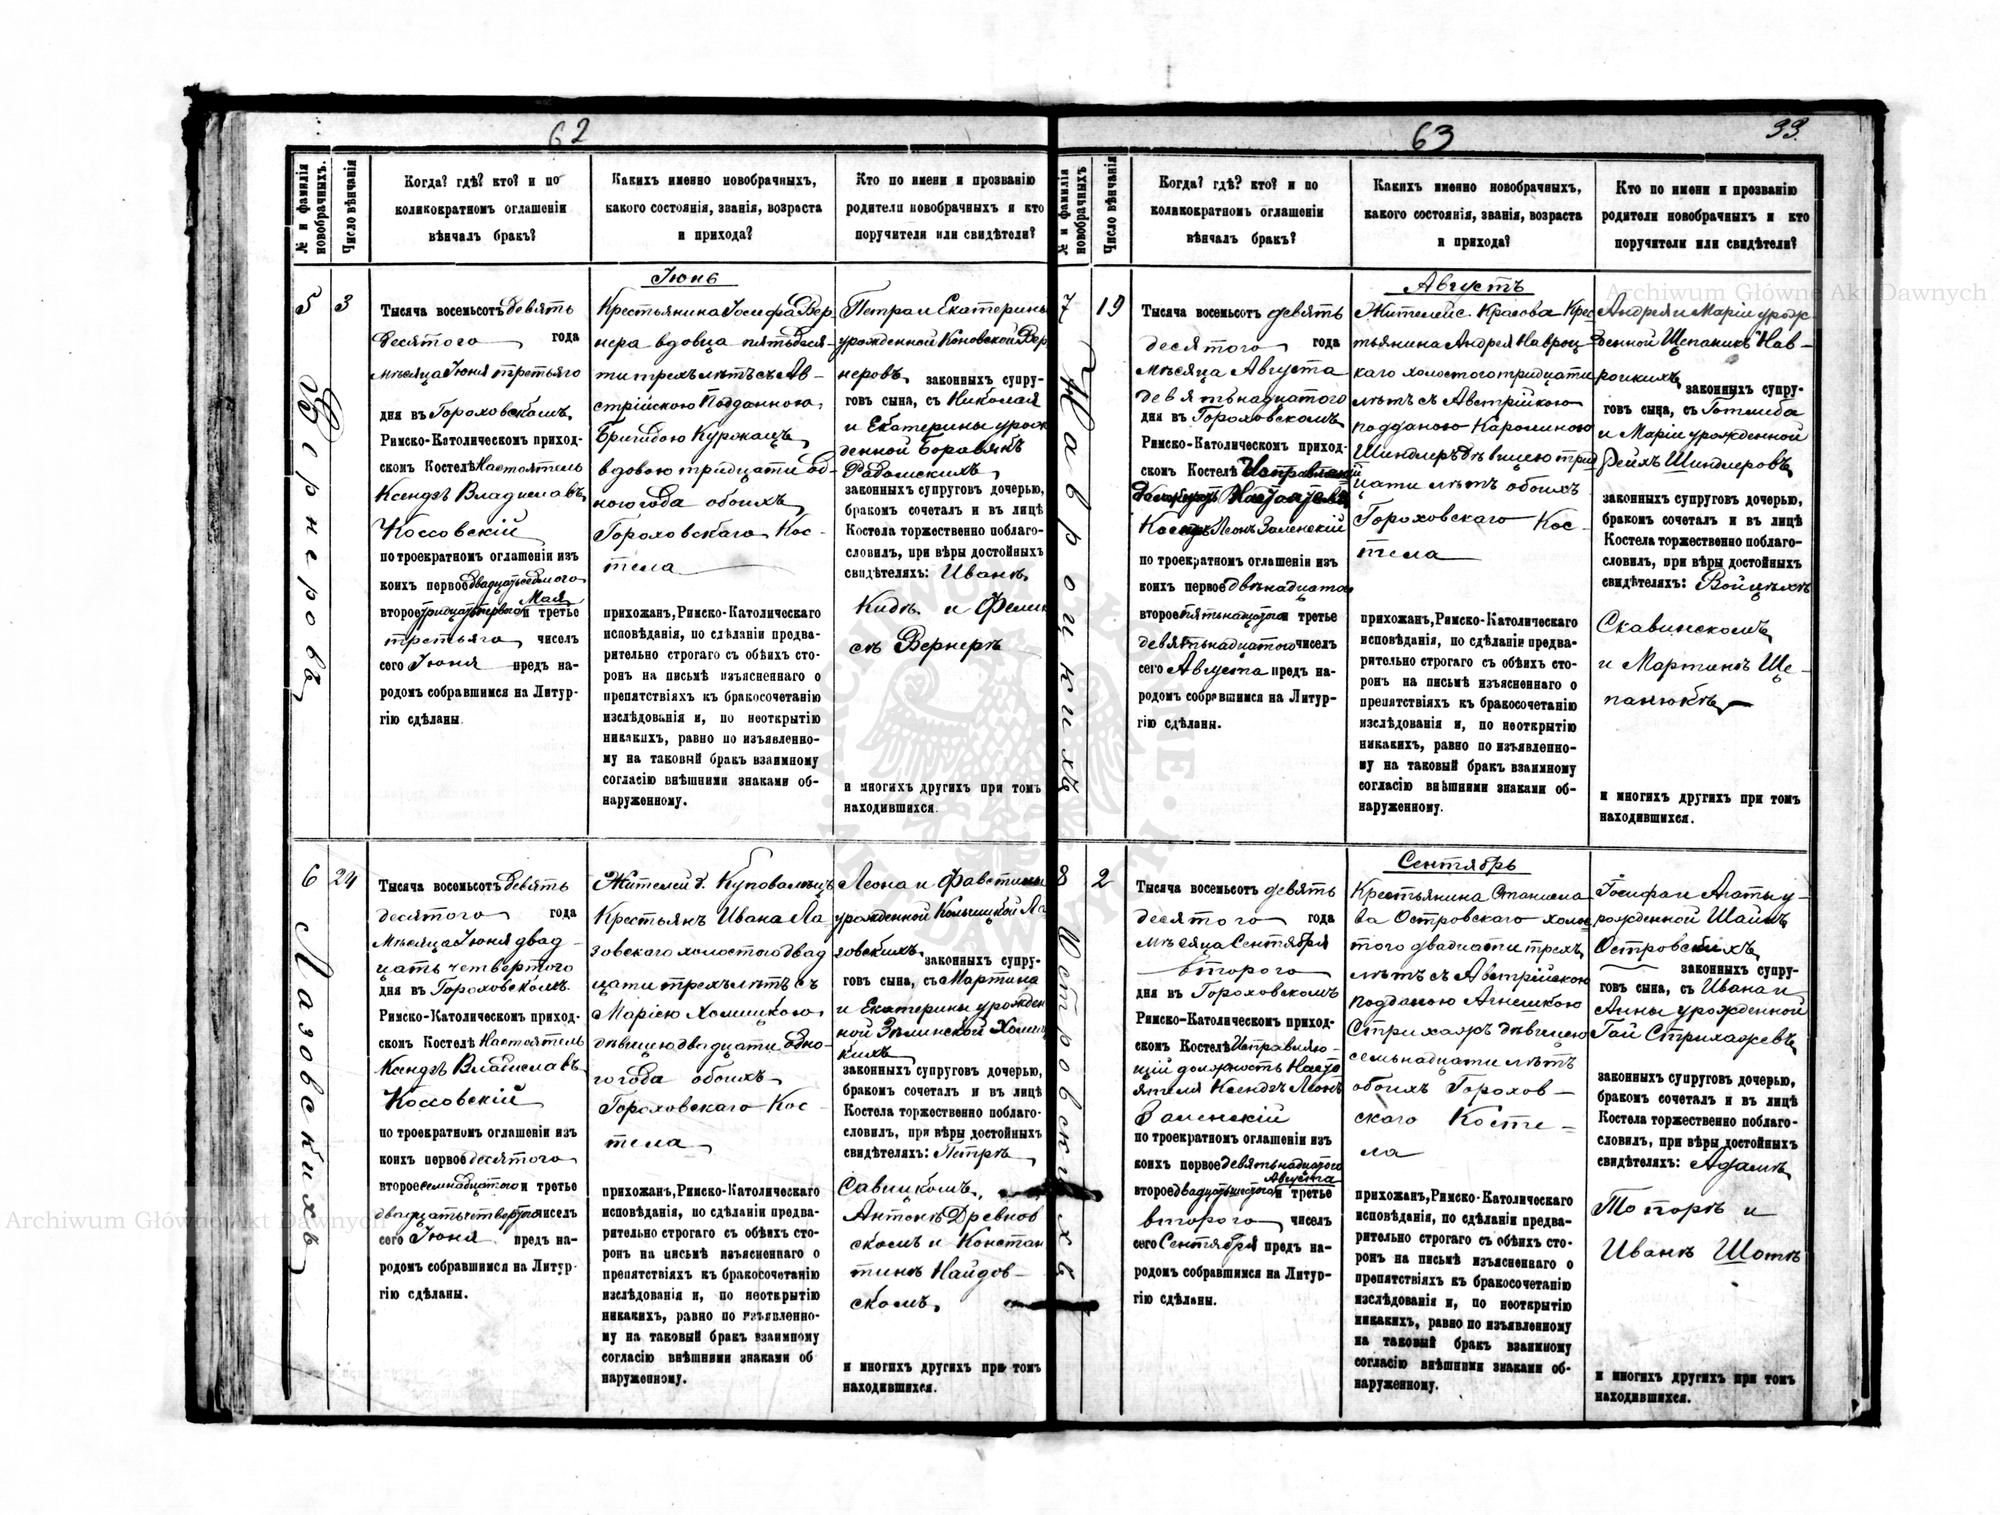 62
№ и фамилія новобрачныхъ.
Число вѣнчанія
Когда? гдѣ? кто? и по
коликократномъ оглашеніи
вѣнчалъ бракъ?
Какихъ именно новобрачныхъ,
какого состоянія, званія, возраста
и прихода?
Кто по имени и прозванію
родители новобрачныхъ и кто
поручители или свидѣтели?
5
Вернеровъ
3
Тысяча восемьсотъ девять
десятого года
мѣсяца Іюня третьяго
дня въ Гороховскомъ
Римско-Католическомъ приход-
скомъ Костелѣ Настоятель
Ксендзъ Владиславъ
Коссовскій
по троекратномъ оглашеніи изъ
коихъ первое двадцатьседьмого
Мая
второе тридцатьпервого и третье
третьяго чиселъ
сего Іюня предъ на-
родомъ собравшимся на Литур-
гію сдѣланы.
Іюнь
Крестьянина Іосифа Вер-
нера вдовца пятьдеся-
ти трехъ лѣтъ съ Ав-
стрійскою Подданною
Бригидою
вдовою тридцати од-
ного года обоихъ
Гороховскаго Кос-
тела
прихожан, Римско-Католическаго
исповѣданія, по сдѣланіи предва-
рительно строгаго съ обѣихъ сто-
ронъ на письмѣ изъясненнаго о
препятствіяхъ къ бракосочетанію
изслѣдованія и, по неоткрытію
никакихъ, равно по изъявленно-
му на таковый бракъ взаимному
согласію внѣшними знаками об-
наруженному.
Петра и Екатерины
урожденной Коновской Вер
неровъ законныхъ супру-
говъ сына, съ Николая
и Екатерины урож
денной Боровякъ
Радомскихъ
законныхъ супруговъ дочерью,
бракомъ сочеталъ и въ лицѣ
Костела торжественно поблаго-
словилъ, при вѣры достойныхъ
свидѣтеляхъ: Иванѣ
и Фелик
сѣ Вернерѣ
и многихъ другихъ при томъ
находившихся.
6
Лазовскихъ
24
Тысяча восемьсотъ девять
десятого года
мѣсяца Іюня двад-
цать четвертого
дня въ Гороховскомъ
Римско-Католическомъ приход-
скомъ Костелѣ Настоятель
Ксендзъ Владиславъ
Коссовскій
по троекратномъ оглашеніи изъ
коихъ первое десятого
второе семнадцатого и третье
двадцатьчетвертого чиселъ
сего Іюня предъ на-
родомъ собравшимся на Литур-
гію сдѣланы.
Жителей д.
Крестьянъ Ивана Ла
зовского холостого двад
цати трехъ лѣтъ съ
Маріею Хомицкою
дѣвицею двадцати одно-
го года обоихъ
Гороховскаго Кос-
тела
прихожан, Римско-Католическаго
исповѣданія, по сдѣланіи предва-
рительно строгаго съ обѣихъ сто-
ронъ на письмѣ изъясненнаго о
препятствіяхъ къ бракосочетанію
изслѣдованія и, по неоткрытію
никакихъ, равно по изъявленно-
му на таковый бракъ взаимному
согласію внѣшними знаками об
наруженному.
Леона и Фавстины
урожденной Ла
зовскихъ законныхъ супру-
говъ сына, съ Мартина
и Екатерины урожден
ной Зѣлинской Хомиц
кихъ
законныхъ супруговъ дочерью,
бракомъ сочеталъ и въ лицѣ
Костела торжественно поблаго-
словилъ, при вѣры достойныхъ
свидѣтеляхъ: Петрѣ
Савицкомъ,
Антонѣ Древнов
скомъ и Констан
тинѣ Найдов-
скомъ
и многихъ другихъ при томъ
находившихся.
63
33.
№ и фамилія новобрачныхъ
Число вѣнчанія
Когда? гдѣ? кто? и по
коликократномъ оглашеніи
вѣнчалъ бракъ?
Какихъ именно новобрачныхъ,
какого состоянія, званія, возраста
и прихода?
Кто по имени и прозванію
родители новобрачныхъ и кто
поручители или свидѣтели?
7
Навроцкихъ
19
Тысяча восемьсотъ девять
десятого года
мѣсяца Августа
девятьнадцатого
дня въ Гороховскомъ
Римско-Католическомъ приход-
скомъ Костелѣ
Ксендзъ Леонъ Заленскій
по троекратномъ оглашеніи изъ
коихъ первое двѣнадцатого
второе пятьнадцатого и третье
девятьнадцатого чиселъ
сего Августа предъ на-
родомъ собравшимся на Литур-
гію сдѣланы.
Августъ
Жителей с. Красова Крес
тьянина Андрея Навроц-
каго холостого тридцати
лѣтъ съ Австрійкою
подданою Каролиною
Шиндлеръ дѣвицею трид
цати лѣтъ обоихъ
Гороховскаго Кос-
тела
прихожан, Римско-Католическаго
исповѣданія, по сдѣланіи предва-
рительно строгаго съ обѣихъ сто-
ронъ на письмѣ изъясненнаго о
препятствіяхъ къ бракосочетанію
изслѣдованія и, по неоткрытію
никакихъ, равно по изъявленно-
му на таковый бракъ взаимному
согласію внѣшними знаками об-
наруженному.
Андрея и Маріи урож-
денной Щепанихъ Нав-
роцкихъ законныхъ супру-
говъ сына, съ Готлиба
и Маріи урожденной
Рейхъ Шиндлеровъ
законныхъ супруговъ дочерью,
бракомъ сочеталъ и въ лицѣ
Костела торжественно поблаго-
словилъ, при вѣры достойныхъ
свидѣтеляхъ: Войцѣхѣ
Скавинскомъ
и Мартинѣ Ще-
панюкѣ
и многихъ другихъ при томъ
находившихся.
8
Островскихъ
2
Тысяча восемьсотъ девять
десятого года
мѣсяца Сентября
второго
дня въ Гороховскомъ
Римско-Католическомъ приход-
скомъ Костелѣ Исправляю-
щій должность Насто
ятеля Ксендзъ Леонъ
Заленскій
по троекратномъ оглашеніи изъ
коихъ первое девятьнадцатого
Августа
второе двадцатьшестого и третье
второго чиселъ
сего Сентября предъ на-
родомъ собравшимся на Литур-
гію сдѣланы.
Сентябрь
Крестьянина Станисла
ва Островскаго холос
того двадцати трехъ
лѣтъ съ Австрійкою
подданою Агнешкою
Стрихажъ дѣвицею
семьнадцати лѣтъ
обоихъ Горохов-
скаго Косте-
ла
прихожан, Римско-Католическаго
исповѣданія, по сдѣланіи предва-
рительно строгаго съ обѣихъ сто-
ронъ на письмѣ изъясненнаго о
препятствіяхъ къ бракосочетанію
изслѣдованія и, по неоткрытію
никакихъ, равно по изъявленному
на таковый бракъ взаимному
согласію внѣшними знаками об-
наруженному.
Іосифа и Агаты у-
рожденной Шайнъ
Островскихъ
законныхъ супру-
говъ сына, съ Ивана и
Анны урожденной
Гай Стрихажевъ
законныхъ супруговъ дочерью,
бракомъ сочеталъ и въ лицѣ
Костела торжественно поблаго-
словилъ, при вѣры достойныхъ
свидѣтеляхъ: Адамѣ
Топорѣ и
Иванѣ Шоткѣ
и многихъ другихъ при томъ
находившихся.
Archiwum Główne Akt Dawnych
Archiwum Główne Akt Dawnych